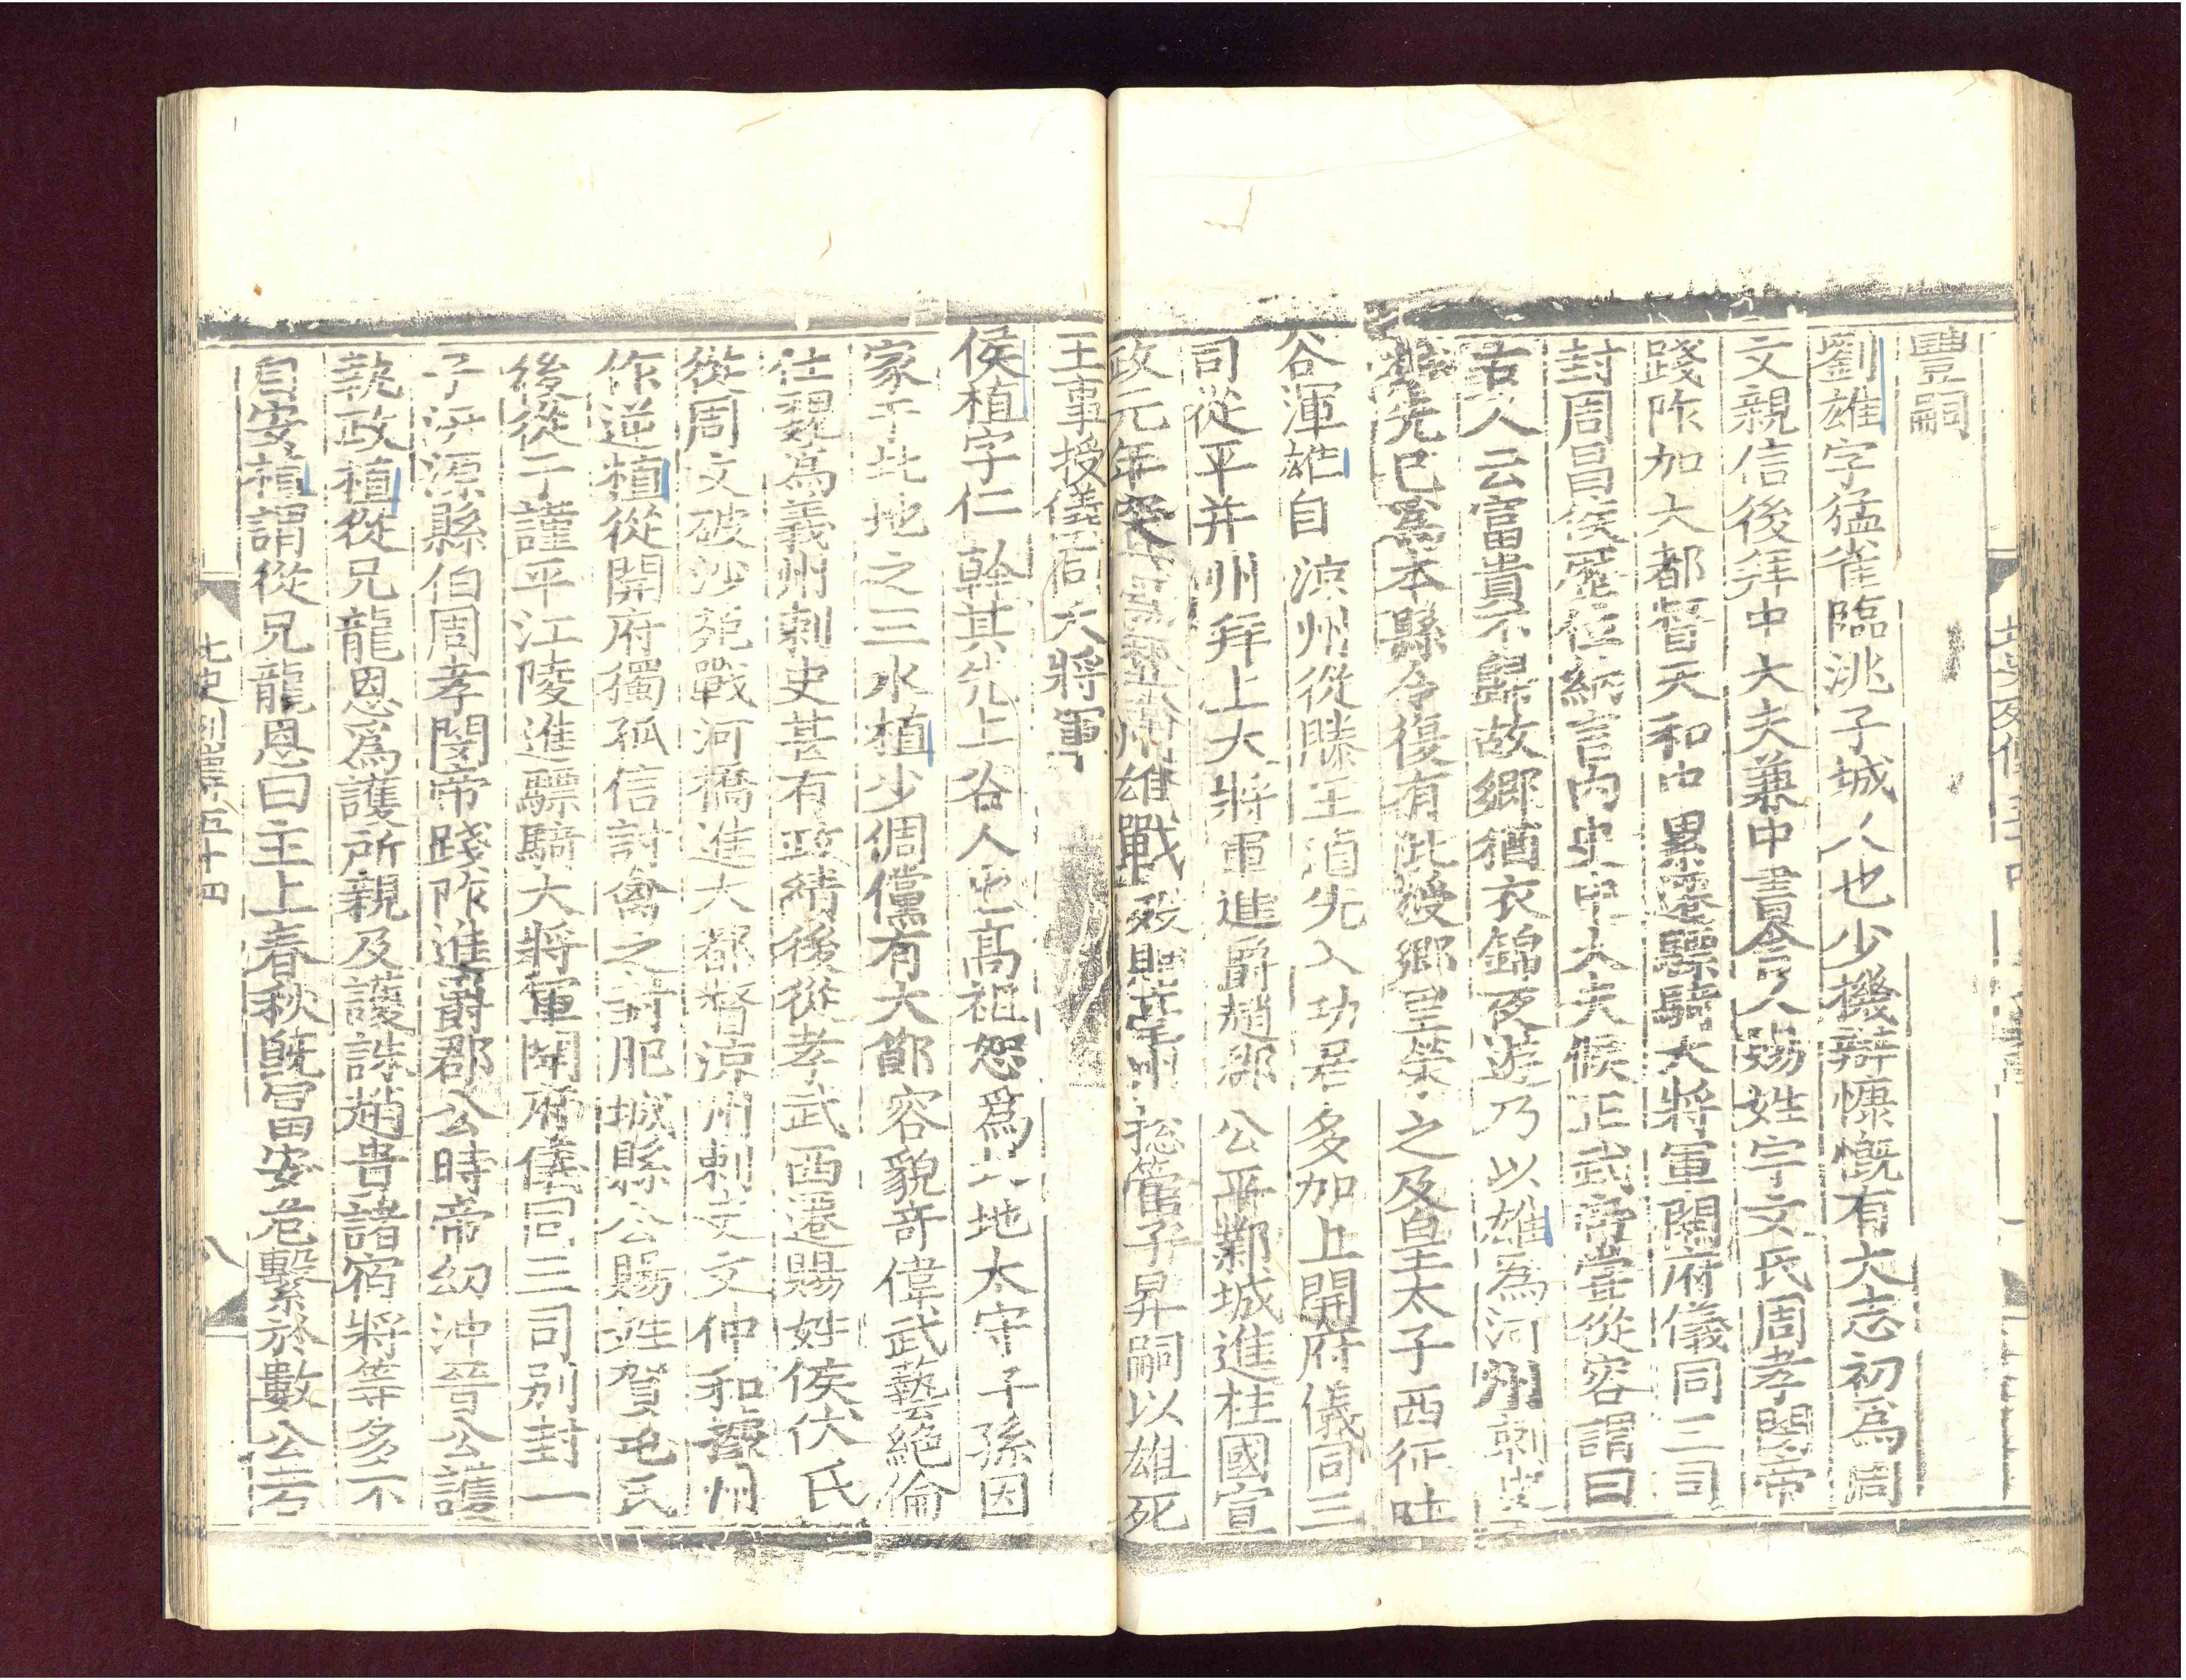 豐嗣
劉雄字猛雀臨洮子城人也少機辯慷慨有大志初爲周
文親信後拜中大夫兼中書舍人賜姓宇文氏周孝閔帝
踐阼加大都督天和中累遷驃騎大將軍開府儀同三司
封周昌侯歷位納言內史中大夫候正武帝嘗從容謂曰
古人云富貴不歸故鄉猶衣錦夜遊乃以雄爲河州刺史
先已爲本縣令復有此授鄉里榮之及皇太子西征吐
谷渾雄自涼州從滕王逌先入功居多加上開府儀同三
司從平并州拜上大將軍進爵趙郡公平鄴城進柱國宣
政元年 州雄戰歿贈亳州揔管子昇嗣以雄死
王事授儀同大將軍
侯植字仁幹其先上谷人也高祖恕爲北地太守子孫因
家于北地之三水植少倜儻有大節容貌奇偉武藝絕倫
仕魏爲義州刺史甚有政績後從孝武西遷賜姓侯伏氏
從周文破沙苑戰河橋進大都督涼州刺史文仲和據州
作逆植從開府獨孤信討禽之封肥城縣公賜姓賀屯氏
後從于謹平江陵進驃騎大將軍開府儀同三司別封一
子汧源縣伯周孝閔帝踐阼進爵郡公時帝幼沖晉公護
執政植從兄龍恩爲護所親及護誅趙貴諸宿將等多不
自安植謂從兄龍恩曰主上春秋旣富安危繫於數公若
北史列傳五十四
八